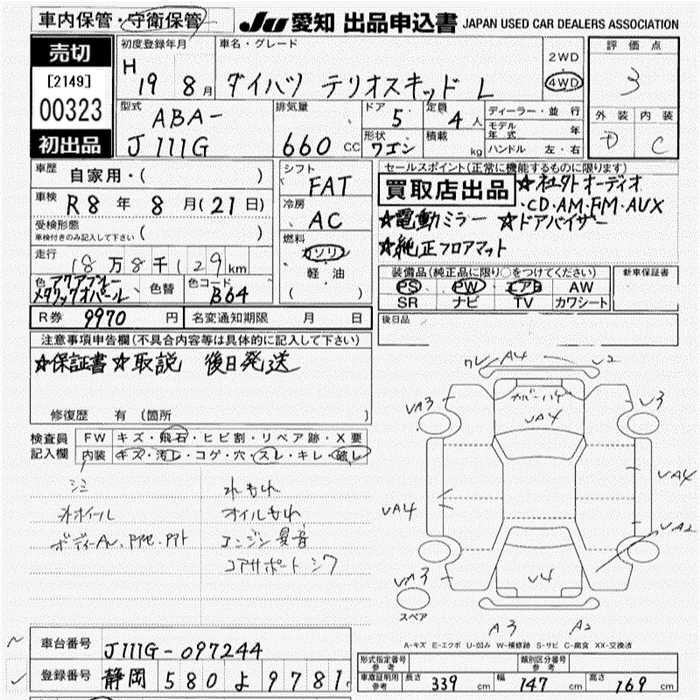 車内保管・守衛保管
JU 愛知 出品申込書 JAPAN USED CAR DEALERS ASSOCIATION
売切
[2149]
00323
初出品
初度登録年月
H 19 8月
車名・グレード
ダイハツ テリオスキッド L
2WD
4WD
評価点
3
外装 内装
D C
型式
ABA-
J111G
排気量
660 CC
ドア 5
定員 4人
形状 ワゴン
積載 kg
ディーラー・並行
モデル年式 年
ハンドル 左・右
車歴 自家用・( )
車検 R8年 8月(21日)
受検形態 ( )
車検付きのみ記入して下さい
走行 18万8千129km
色 アクアブルーメタリックオパール
色替
色コード B64
シフト FAT
冷房 AC
燃料 ガソリン
軽油
( )
セールスポイント(正常に機能するものに限ります)
買取店出品 ☆社外オーディオ
・CD・AM・FM・AUX
☆電動ミラー ☆ドアバイザー
☆純正フロアマット
装備品(純正品に限り○をつけてください)
PS PW エアB AW
SR ナビ TV カワシート
新車保証書
後日品
R券 9970円 名変通知期限 月 日
注意事項申告欄(不具合内容等は具体的に記入して下さい)
☆保証書 ☆取説 後日発送
修復歴 有(箇所 )
検査員記入欄
FW キズ・飛石・ヒビ割・リペア跡・X要
内装 キズ・汚レ・コゲ・穴・スレ・キレ・破レ
シミ
外ホイール
オイルもれ
エンジン異音
コアサポートシワ
A4 V2
VA3 VA4 V3
VA4 VA4
VA2
VA3 V4
スペア
A3 A2
A-キズ E-エクボ U-凹み W-補修跡 S-サビ C-腐食 XX-交換済
車台番号 J111G-097244
登録番号 静岡 580 よ 9781
形式指定番号 参考
類別区分番号 参考
車庫証明用 参考 長さ 339cm 幅 147cm 高さ 169cm